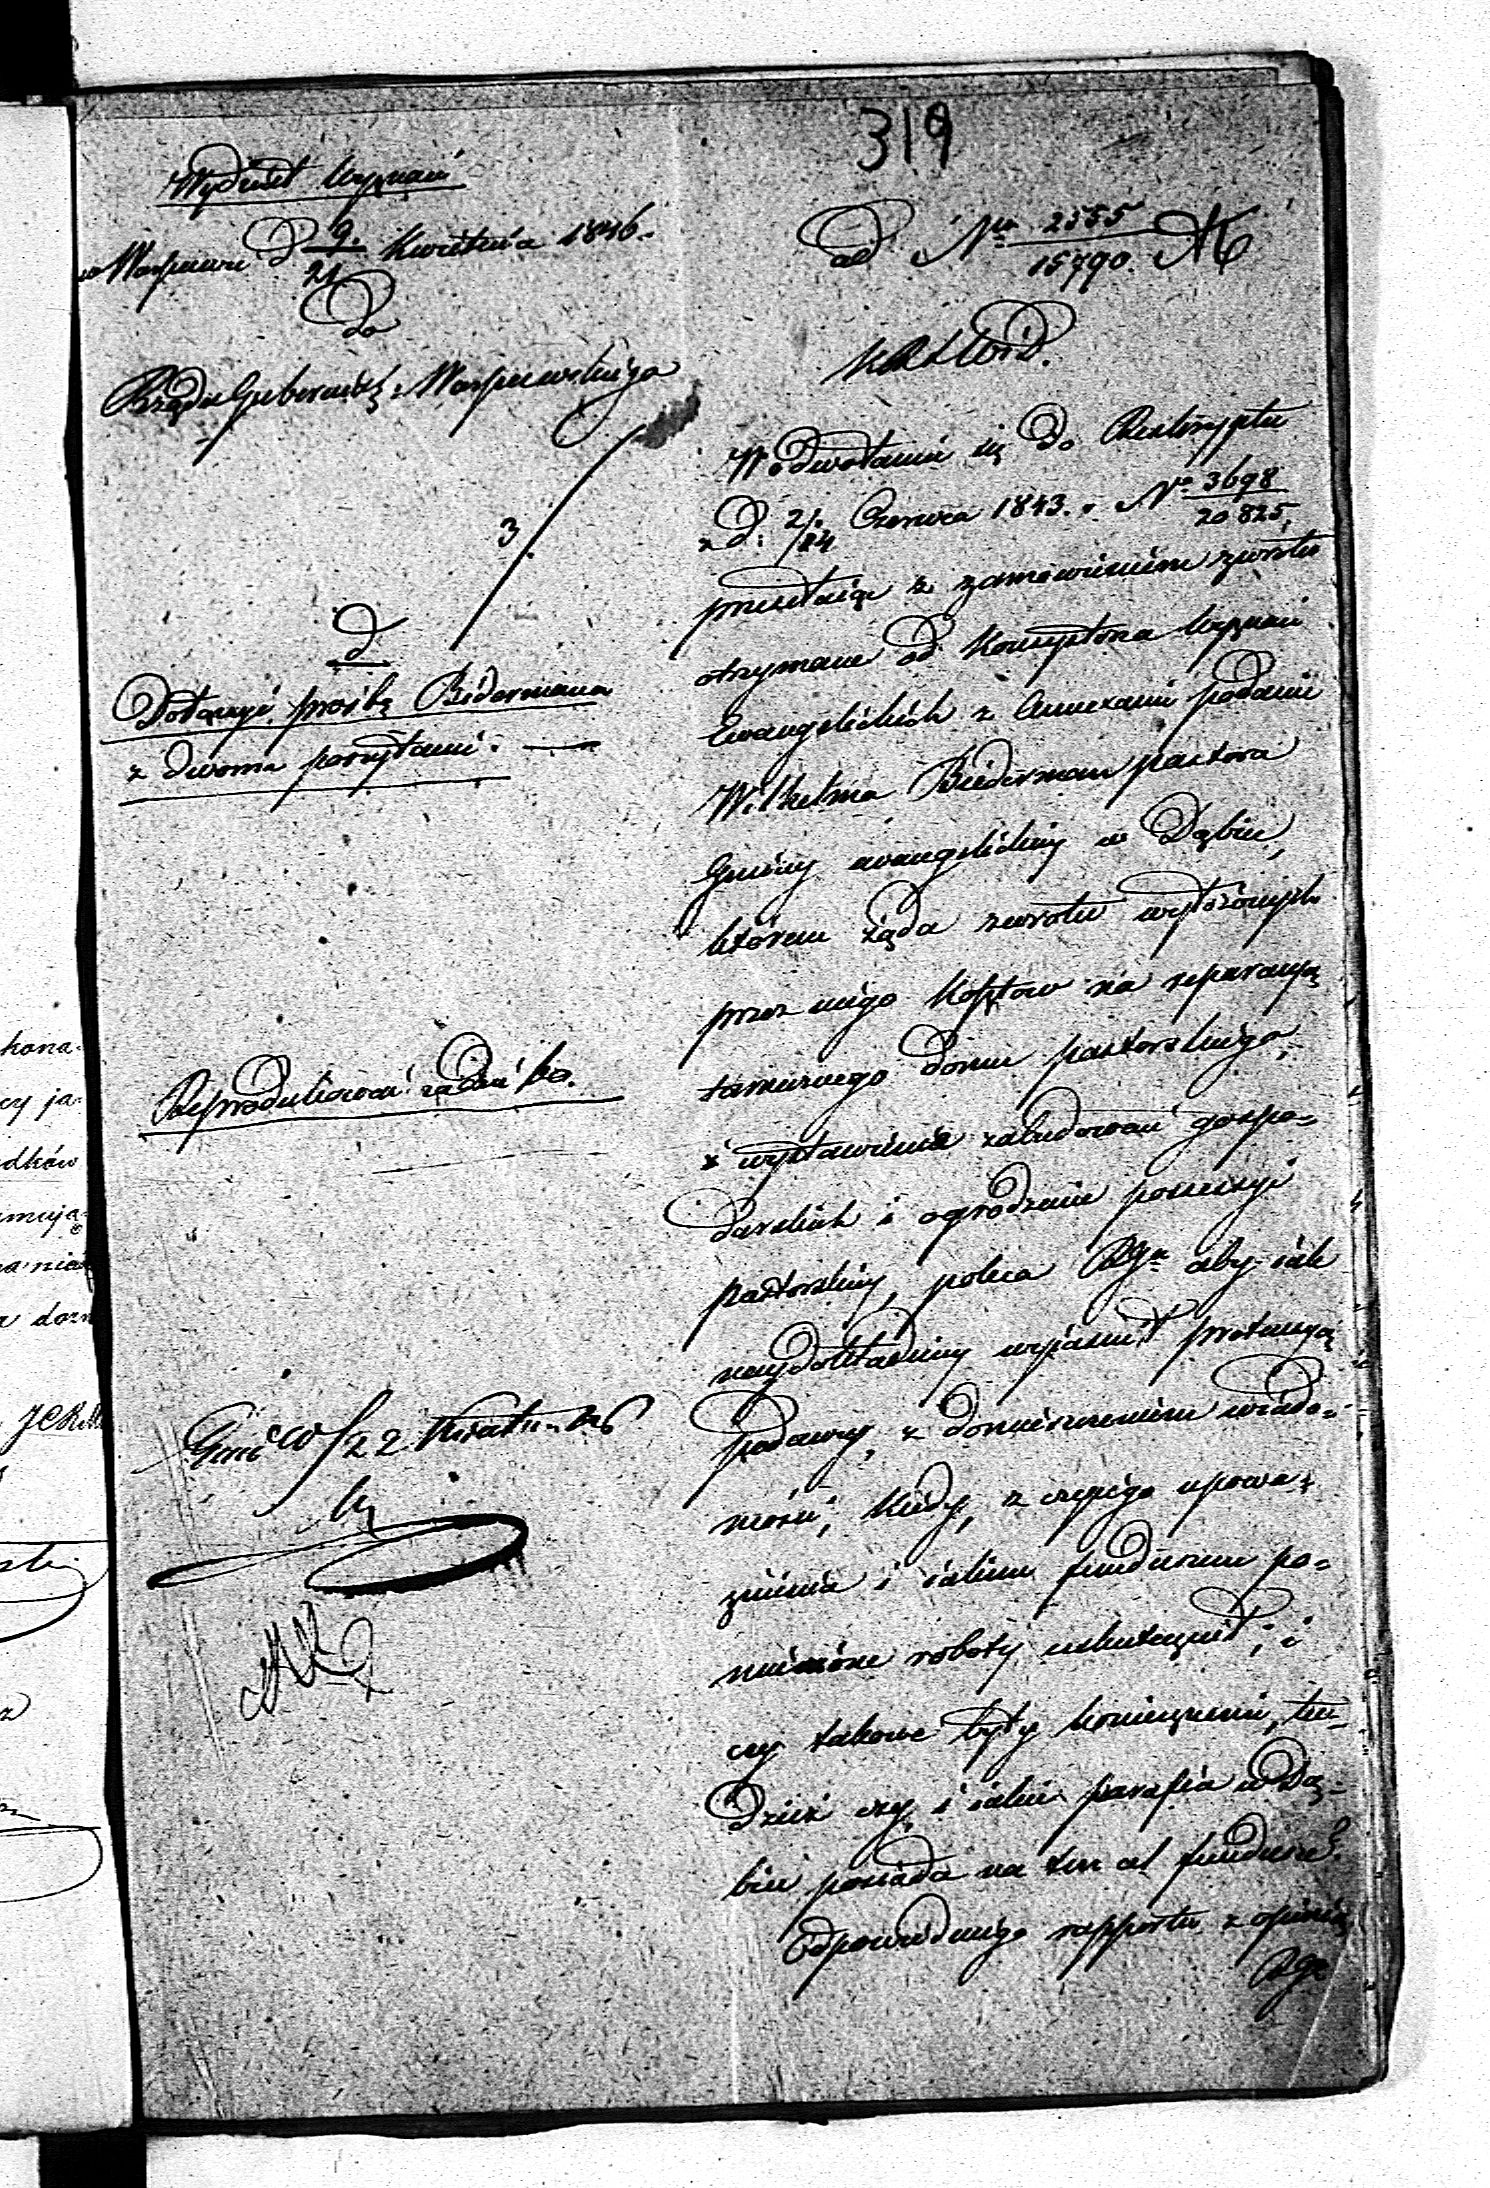 319
Wydział Wyznań
w Warszawie D 9./21 Kwietnia 1846.
Do
Rządu Gubernial. Warszawskiego
3.
d
Dołączyć prośbę Bidermana
z dwoma poszytami. —
Reprodukować za dni 60.
22 Kwiet. 46
ad Nr 2555/15790.
K R S W i D.
W odwołaniu się do Reskryptu
z D: 2/14 Czerwca 1843. Nº 3698/20825,
przesyłając z zamówieniem zwrotu
otrzymane od Konsystorza Wyznań
Ewangelickich z Annexami podanie
Wilhelma Biederman pastora
Gminy ewangelickiey w Dąbiu,
którem żąda zwrotu wyłożonych
przez niego kosztow na reparacyą
tamecznego domu pastorskiego,
i wystawienie zabudowań gospo-
darskich i ogrodzenie possessyi
pastorskiey, poleca Rządowi Gu aby iak
naydokładniey wyjaśnił pretensyą
podawcy, z doniesieniem wiado-
mości, kiedy, z czyiego upowa-
żnienia i iakim funduszem po-
mienione roboty uskutecznił; i
czy takowe były koniecznemi, tu-
dzież czy i iakie parafia w Dą-
biu posiada na ten cel fundusze?
Odpowiedniego rapportu z opinią
Rgu
kona-
cy ja-
dków
muja-
a dozn